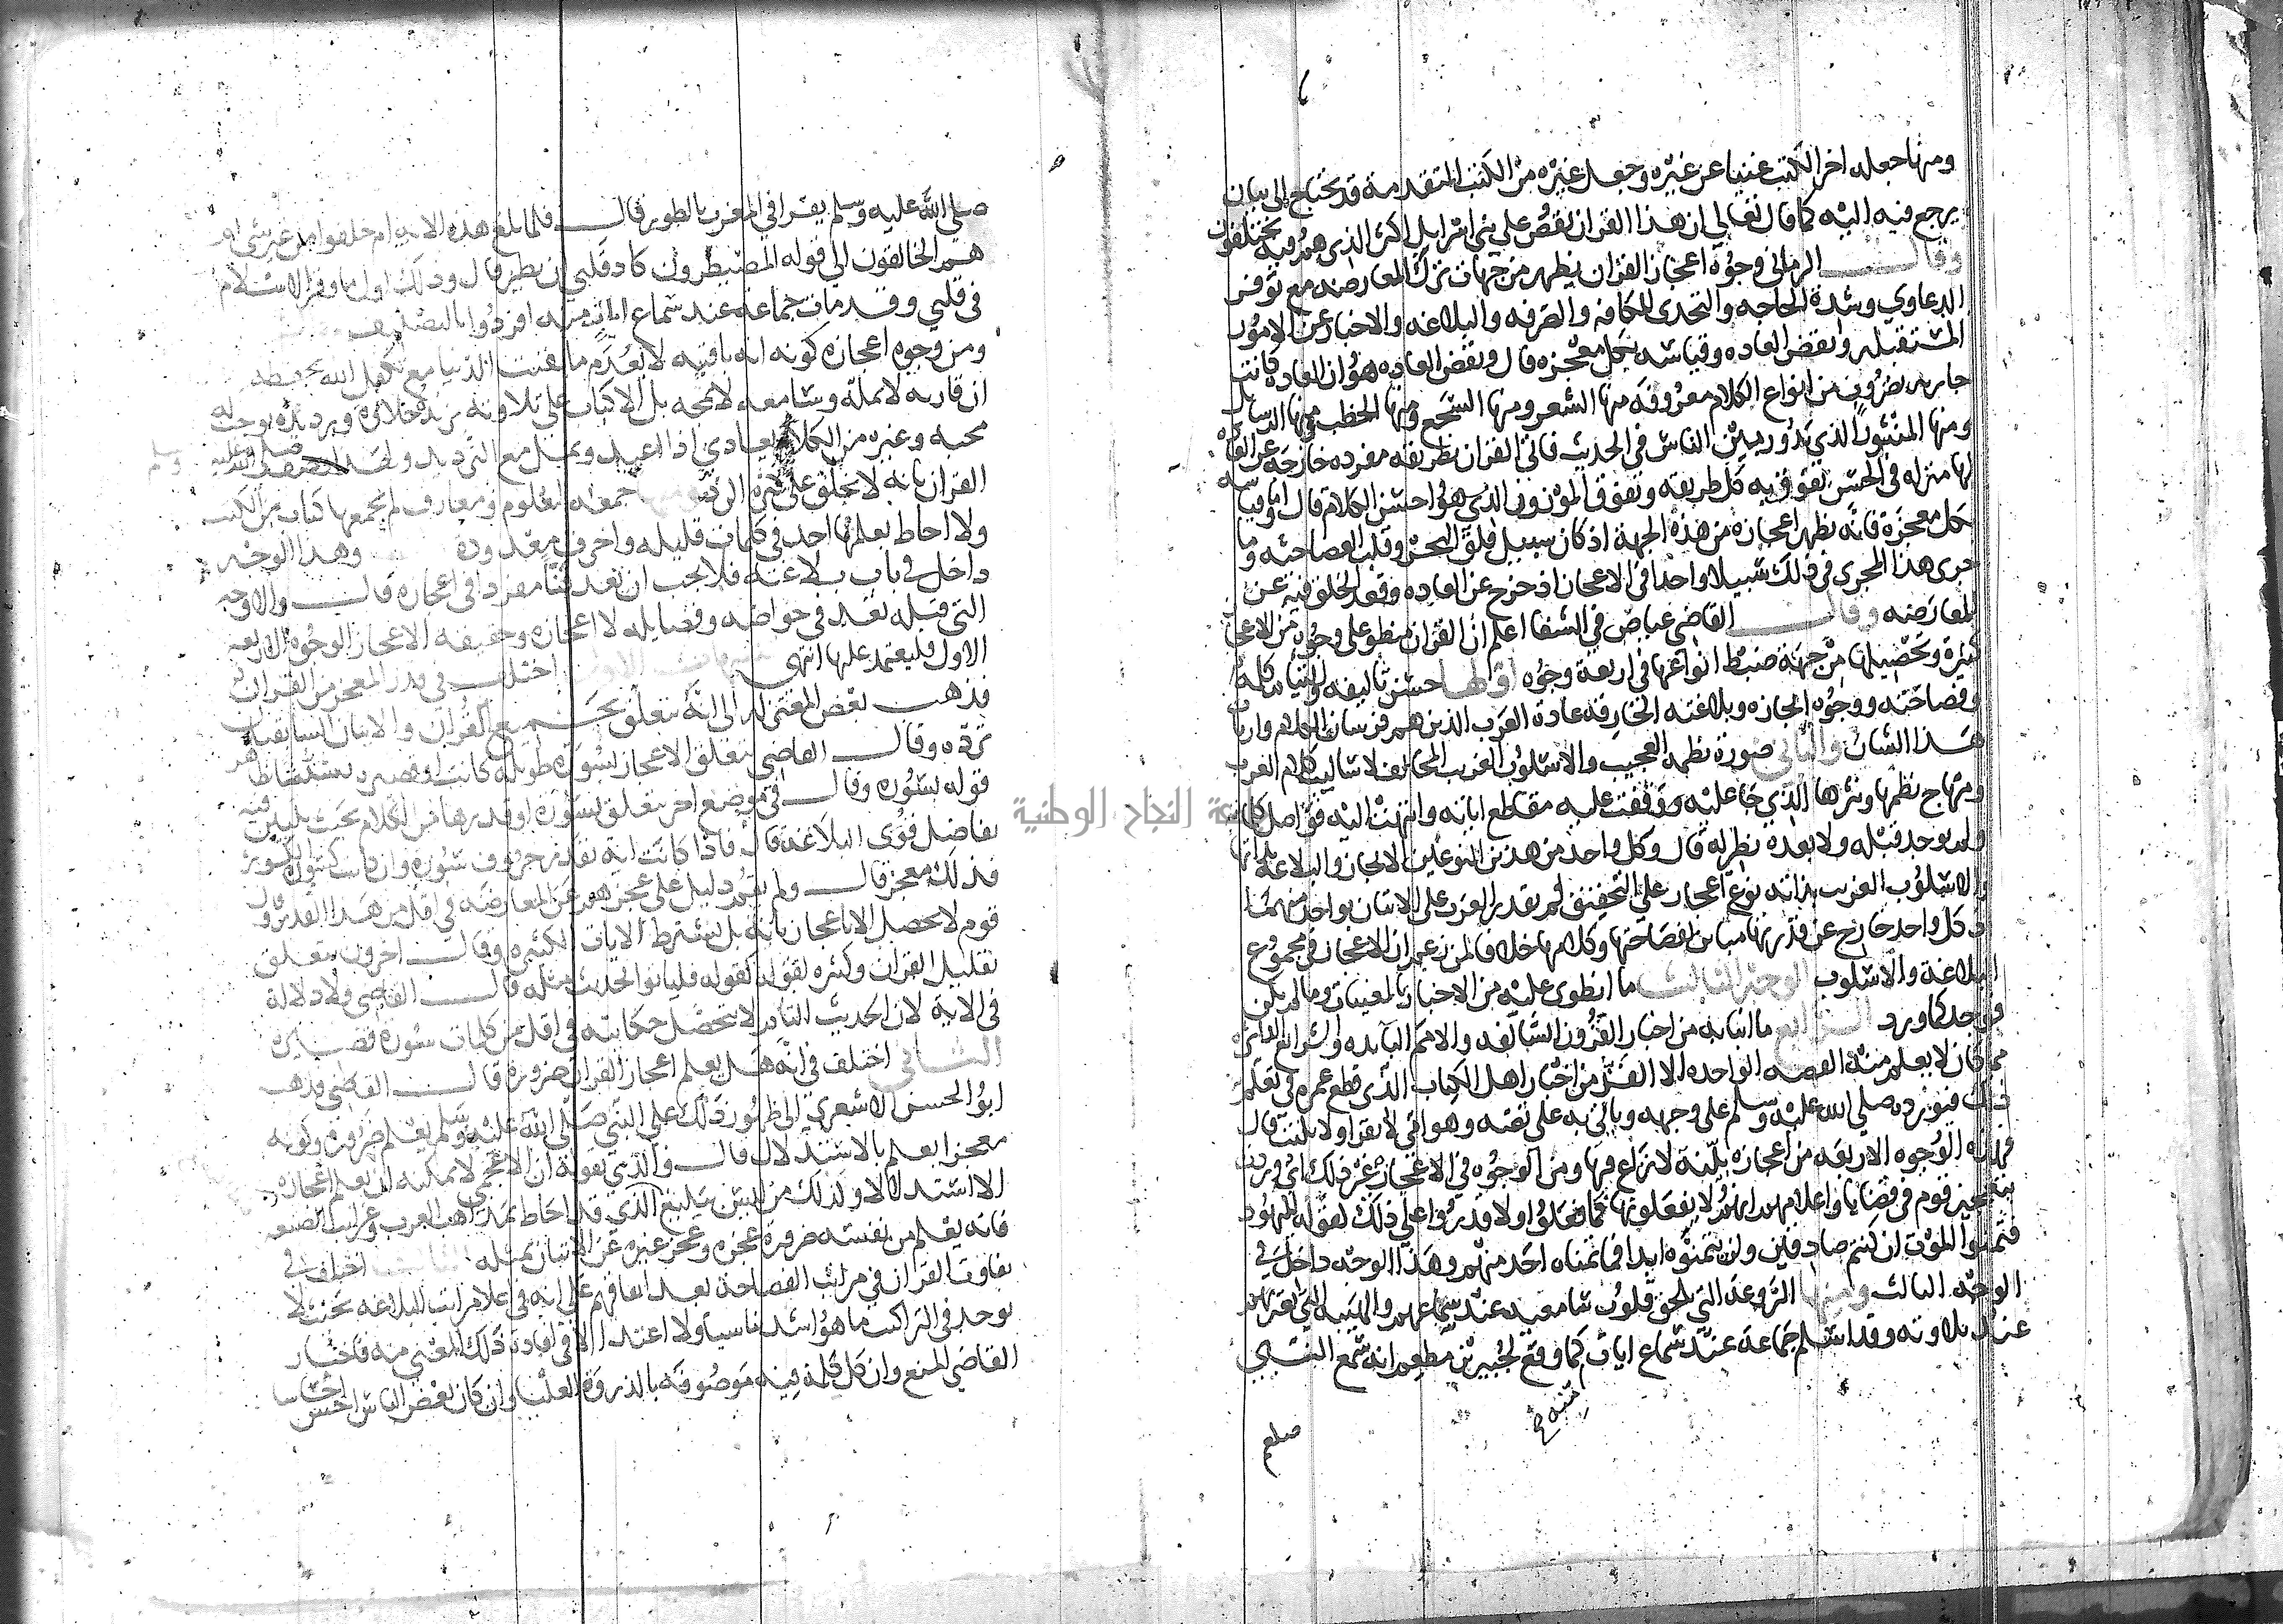 ومنها جعله اخر الكتب غنيا عن غيره وجعل غيره من الكتب المتقدمة قد يحتاج إلى بيان
يرجع فيه اليه كما قال تعالي ان هذا القران يقص علي بني اسرايل اكثر الذي هم فيه يختلفون
وقال الرماني وجوه اعجاز القران يظهر من جهات ترك المعارضه مع توفر
الدعاوي وشدة الحاجه والتحدي للكافه والصرفه والبلاغه والاخبار عن الامور
المستقبله ونقض العاده وقياسه بكل معجزه قال ونقض العاده هو ان العاده كانت
جاريه بضروب من انواع الكلام معروفه منها الشعر ومنها السجع ومنها الخطب ومنها الرسايل
ومنها المنثور الذي يدور بين الناس في الحديث فاتي القران بطريقه مفرده خارجه عن العاده
لها منزله في الحسن تفوق به كل طريقه وتفوق الموزون الذي هو احسن الكلام قال اما وقياسه
بكل معجزة فانه يظهر اعجازه من هذه الجهة اذ كان سبيل فلق البحر وقلب العصا حيه وما
جرى هذا المجرى في ذلك سبيلا واحدا في الاعجاز اذ خرج عن العاده وقعد الخلق فيه عن
المعارضه وقال القاضي عياض في الشفا اعلم ان القران منطو علي وجوه من الاعجاز
كثيرة وتحصيلها من جهة ضبط انواعها في اربعة وجوه اولها حسن تاليفه والتيام كلمه
وفصاحته ووجوه ايجازه وبلاغته الخارقه عادة العرب الذين هم فرسان الكلام وارباب
هذا الشان والثاني صورة نظمه العجيب والاسلوب الغريب المخالف لاساليب كلام العرب
ومنهاج نظمها ونثرها الذي جا عليه ووقفت عليه مقاطع اياته وانتهت اليه فواصل كلماته
ولم يوجد قبله ولا بعده نظير له قال وكل واحد من هذين النوعين الايجاز والبلاغة بذاتها
والاسلوب الغريب بذاته نوع اعجاز علي التحقيق لم يقدر العرب على الاتيان بواحد منهما
اذ كل واحد خارج عن قدرتها مباين لفصاحتها وكلامها خلافا لمن زعم ان الاعجاز في مجموع
البلاغة والاسلوب الوجه الثالث ما انطوى عليه من الاخبار بالمغيبات وما لم يكن
فوجد كما ورد الرابع ما انبا به من اخبار القرون السالفه والامم البايده والشرايع الداثره
مما كان لا يعلم منه القصه الواحده الا الفذ من احبار اهل الكتاب الذي قطع عمره في تعلم
ذلك فيورده صلي الله عليه وسلم على وجهه وياتي به على نصه وهو امي لا يقرا ولا يكتب قال
فهذه الوجوه الاربعه من اعجازه بينة لا نزاع فيها ومن الوجوه في الاعجاز غير ذلك اي وردت
بتعجيز قوم في قضايا واعلامهم انهم لا يفعلونها فما فعلوا ولا قدروا على ذلك لقوله لليهود
فتمنوا الموت ان كنتم صادقين ولن يتمنوه ابدا فما تمناه احد منهم وهذا الوجه داخل في
الوجه الثالث ومنها الروعة التي يلحق قلوب سامعيه عند سماعهم والهيبه التي تعتريهم
عند تلاوته وقد اسلم جماعة عند سماع ايات كما وقع لجبير بن مطعم انه سمع النبي
صلعم
صلى الله عليه وسلم يقرا في المغرب بالطور قال فلما بلغ هذه الايه ام خلقوا من غير شي ام
هم الخالقون الي قوله المصيطرون كاد قلبي ان يطير قال وذلك اول ما وقر الاسلام
في قلبي وقد مات جماعة عند سماع ايات منه افردوا بالتصنيف
ومن وجوه اعجازه كونه ايه باقيه لا تعدم ما بقيت الدنيا مع تكفل الله بحفظه
ان قاريه لا يمله وسامعه لا يمجه بل الاكباب على تلاوته يزيده حلاوة وترديده يوجب له
محبه وغيره من الكلام يعادي اذا اعيد ويمل مع الترديد ولهذا وصف صلى الله عليه وسلم
القران بانه لا يخلق على كثرة الرد جمعه لعلوم ومعارف لم يجمعها كتاب من الكتب
ولا احاط بعلمها احد في كلمات قليله واحرف معدوده وهذا الوجه
داخل في باب بلاغته فلا يجب ان يعد فنا مفردا في اعجازه قال والاوجه
التي قبله تعد في خواصه وفضايله لا اعجازه وحقيقه الاعجاز الوجوه الاربعه
الاول فليعتمد عليها انتهى الاول اختلف في قدر المعجز من القران
فذهب بعض المعتزله الى انه متعلق بجميع القران والايتان السابقتان
ترده وقال القاضي يتعلق الاعجاز بسورة طويلة كانت او قصيره تشبثا بظاهر
قوله بسوره وقال في موضع اخر يتعلق بسورة او قدرها من الكلام بحيث يتبين فيه
تفاضل قوى البلاغة قال فاذا كانت ايه بقدر حروف سوره وان كانت كسورة الكوثر
فذلك معجز قال ولم يقم دليل على عجزهم عن المعارضه في اقل من هذا القدر وقال
قوم لا يحصل الاعجاز باية بل يشترط الايات الكثيره وقال اخرون يتعلق
بقليل القران وكثيره لقوله فلياتوا بحديث مثله قال القاضي ولا دلالة
في الاية لان الحديث التام لا تتحصل حكايته في اقل من كلمات سورة قصيره
الثاني اختلف في انه هل يعلم اعجاز القران ضرورة قال القاضي فذهب
ابو الحسن الاشعري الى ظهور ذلك على النبي صلى الله عليه وسلم يعلم ضرورة وكونه
معجزا يعلم بالاستدلال قال والذي نقوله ان الاعجمي لا يمكنه ان يعلم اعجازه
الا استدلالا وكذلك من ليس ببليغ الذي قد احاط بمذاهب العرب وغرايب الصنعه
فانه يعلم من نفسه ضرورة عجزه وعجز غيره عن الاتيان بمثله اختلف في
تفاوت القران في مراتب الفصاحة بعد اتفاقهم على انه في اعلا مراتب البلاغه بحيث لا
يوجد في التراكيب ما هو اشد تناسبا ولا اعتدالا في افادة ذلك المعني منه فاختار
القاضي المنع وان كل كلمة فيه موصوفه بالذروة العليا وان كان بعض الناس احسن احساسا